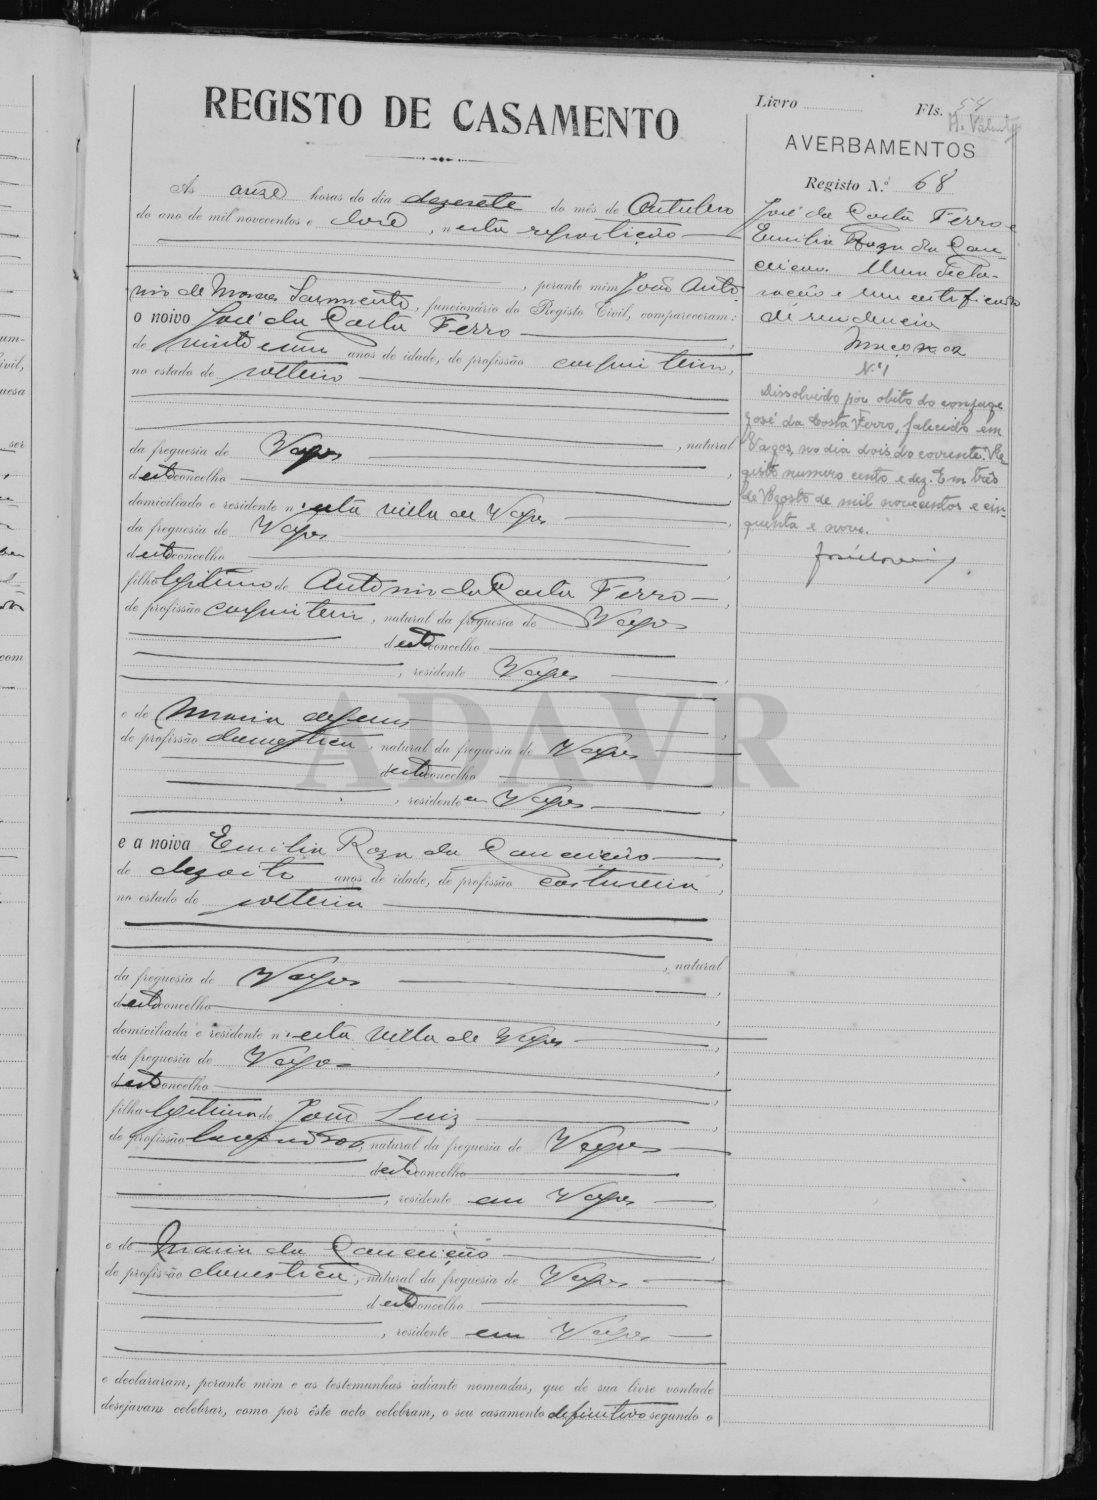 REGISTO DE CASAMENTO
Livro
Fls. 54
AVERBAMENTOS
Registo N.º 68
As onze horas do dia dezesete do mês de Outubro
do ano de mil novecentos e doze, nesta repartição
, perante mim João Anto-
nio de Moraes Sarmento, funcionário do Registo Civil, compareceram:
o noivo José da Costa Ferro
de vinte e um anos de idade, de profissão carpinteiro,
no estado de solteiro
, natural
da freguesia de Vagos
deste concelho
domiciliado e residente n'esta villa de Vagos
da freguesia de Vagos
deste concelho
filho legitimo de Antonio da Costa Ferro
de profissão carpinteiro, natural da freguesia de Vagos
deste concelho
, residente Vagos
e de Maria de Jesus
de profissão domestica, natural da freguesia de Vagos
deste concelho
, residente em Vagos
e a noiva Emilia Roza da Conceição
de dezoito anos de idade, de profissão costureira
no estado de solteira
, natural
da freguesia de Vagos
deste concelho
domiciliada e residente n'esta villa de Vagos
da freguesia de Vagos
deste concelho
filha legitima de João Luiz
de profissão , natural da freguesia de Vagos
deste concelho
, residente em Vagos
e de Maria da Conceição
de profissão domestica, natural da freguesia de Vagos
deste concelho
, residente em Vagos
e declararam, perante mim e as testemunhas adiante nomeadas, que de sua livre vontade
desejavam celebrar, como por êste acto celebram, o seu casamento definitivo segundo o
José da Costa Ferro e
Emilia Roza da Con-
ceicao. Uma decla-
ração e um certificado
de residencia
N.º 1
Dissolvido por obito do conjuge
José da Costa Ferro, falecido em
Vagos, no dia dois do corrente. Re-
gisto numero cento e dez. Em três
de Agosto de mil novecentos e cin-
quenta e nove.
ADAVR